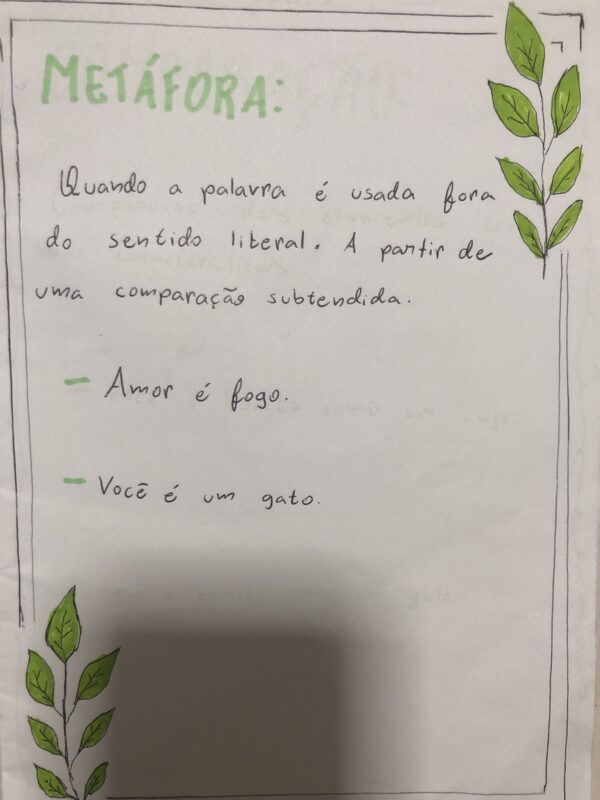 METÁFORA:
Quando a palavra é usada fora
do sentido literal. A partir de
uma comparação subtendida.
- Amor é fogo.
- Você é um gato.